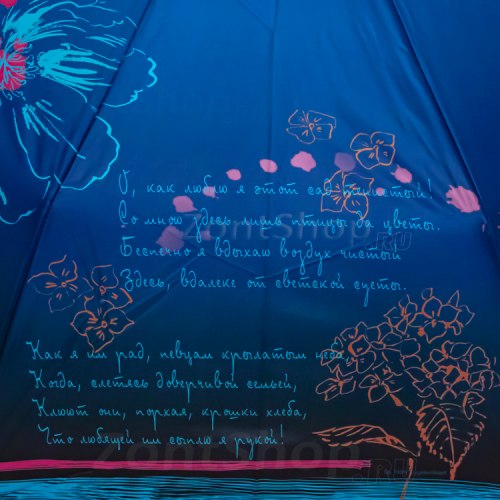 О, как люблю я этот сад тенистый!
Со мною здесь лишь птицы да цветы.
Беспечно я вдыхаю воздух чистый
Здесь, вдалеке от светской суеты.
Как я им рад, певцам крылатым неба,
Когда, слетясь доверчивой семьей,
Клюют они, порхая, крошки хлеба,
Что любящей им сыплю я рукой!
ZontShop.RU
ZontShop.RU